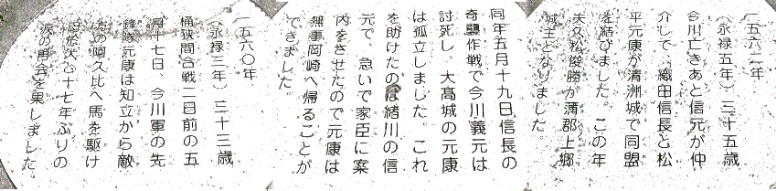 一五六〇年
(永禄三年)三十三歳
桶狭間合戦二日前の五
月十七日、今川軍の先
鋒隊元康は知立から敵
の阿久比へ馬を駆け
於大と十七年ぶりの
涙の再会を果しました。
同年五月十九日信長の
奇襲作戦で今川義元は
討死し、大高城の元康
は孤立しました。これ
を助けたのは緒川の信
元で、急いで家臣に案
内をさせたので元康は
無事岡崎へ帰ることが
できました。
一五六二年
(永禄五年)三十五歳
今川亡きあと信元が仲
介して、織田信長と松
平元康が清洲城で同盟
を結びました。この年
夫久松俊勝が蒲郡上郷
城主となりました。